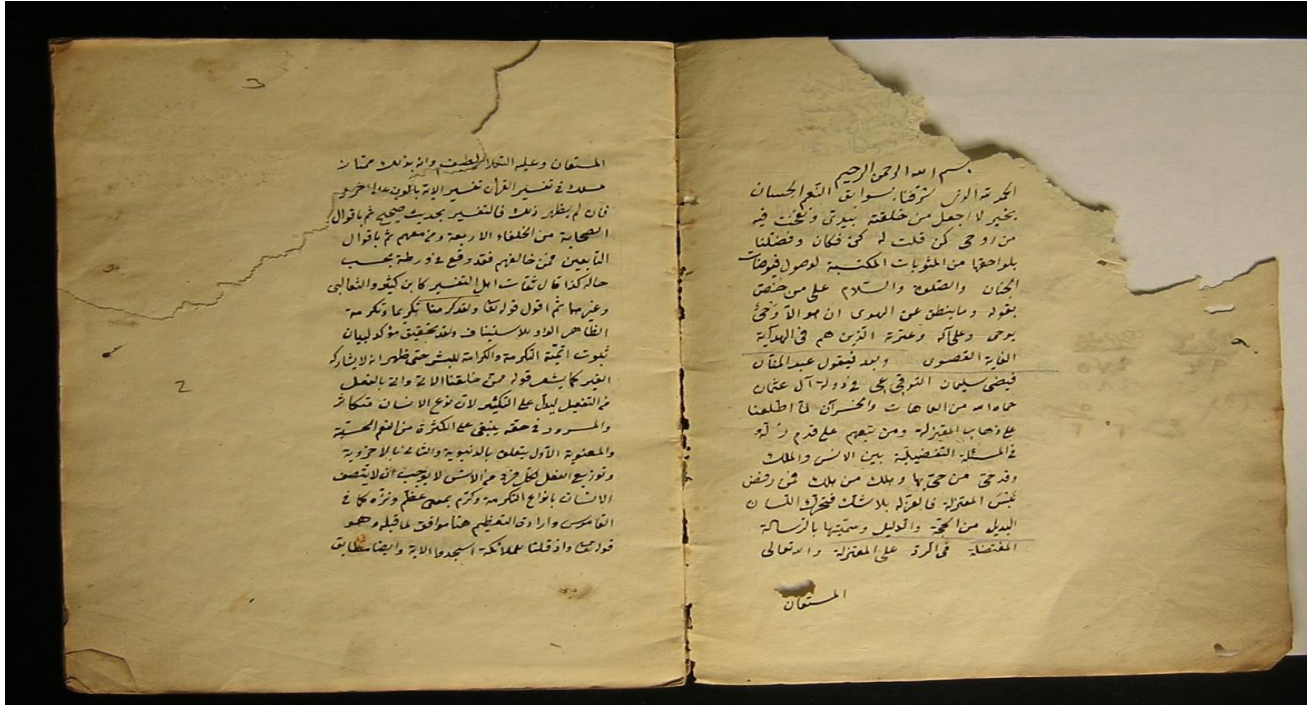 بسم الله الرحمن الرحيم
الحمد لله الذى شرفنا بسوابق النعم الحسان
بخير لا اجعل من خلقته بيدى ونفخت فيه
من روحى كمن قلت له كن فكان وفضلنا
بلواحقها من المثوبات المكتسبة لوصول فيوضات
الجنان والصلوة والسلام على من خص
بقوله وما ينطق عن الهوى ان هو الا وحى
يوحى وعلى آله وعترته الذين هم فى الهداية
الغاية القصوى وبعد فيقول عبد المنان
فيضى سليمان التوقى فى دولة آل عثمان
حماه الله من العاهات والخسران لما اطلعنا
على ذهاب المعتزلة ومن تبعهم على قدم
فى المسئلة التفضيلية بين الانس والملك
وقد حى من حى بها وهلك من هلك فمن رفض
المعتزلة بلا شك فتحرك اللسان
البديل من الحجة والدليل وسميتها بالرسالة
المفتضلة فى الرد على المعتزلة والله تعالى
المستعان
3
المستعان وعليه التكلان وانه بذلك
مسلك فى تفسير القرآن تفسير الاية
فان لم يظهر ذلك فالتفسير بحديث صحيح ثم باقوال
الصحابة من الخلفاء الاربعة ومن معهم ثم باقوال
التابعين فمن خالفهم فقد وقع فى ورطة بحسب
حاله كذا قال ثقات اهل التفسير كابن كثير والثعالبى
وغيرهما ثم اقول قوله تعالى ولقد كرمنا تكريما وتكرمة
الظاهر الواو للاستيناف ولقد تحقيق مؤكد لبيان
ثبوت اتمية التكرمة والكرامة للبشر حتى ظهر انه لا يشاركه
الغير كما يشعر قوله ممن خلقنا الاية واتى بالفعل
من التفعيل ليدل على التكثير لان نوع الانسان متكاثر
والمسرود فى حقه ينبغى على الكثرة من النعم الحسية
والمعنوية الاول يتعلق بالدنيوية والثانى بالاخروية
وتوزيع الفعل لكل فرد من الانس لا يوجب ان لا يتصف
الانسان بانواع التكرمة وكرم بمعنى عظم ونزه كما فى
القاموس وارادة التعظيم هنا موافق لما قبله وهو
قوله واذ قلنا للملائكة اسجدوا الاية وايضا مطابق
2